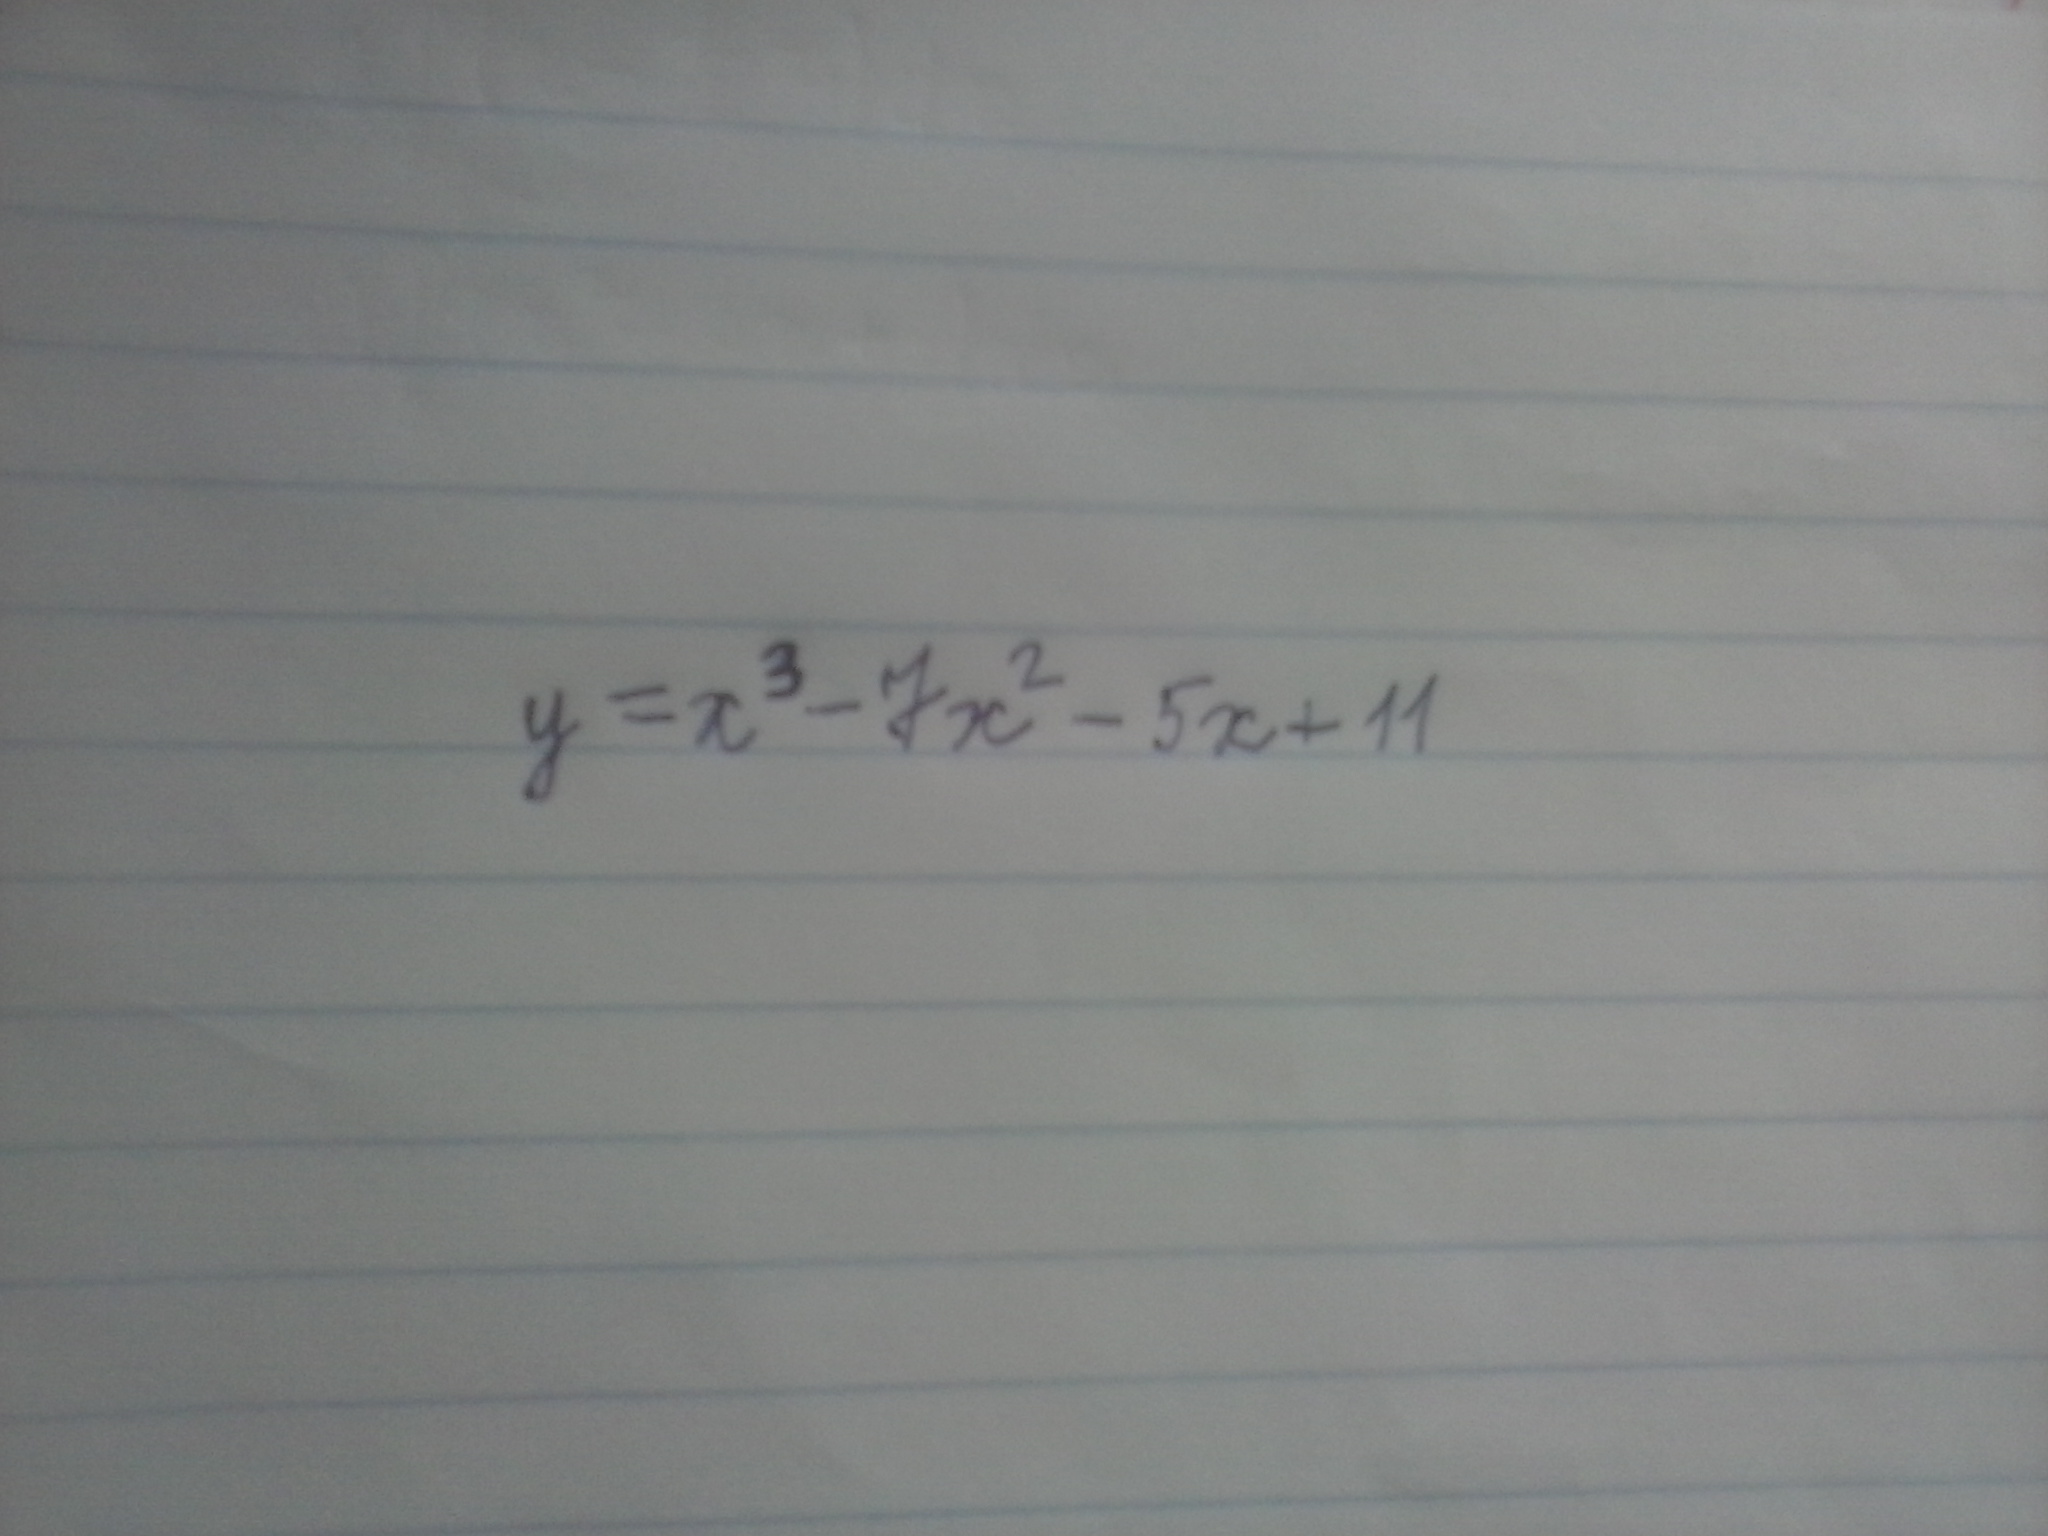 y = x³ - 7x² - 5x + 11